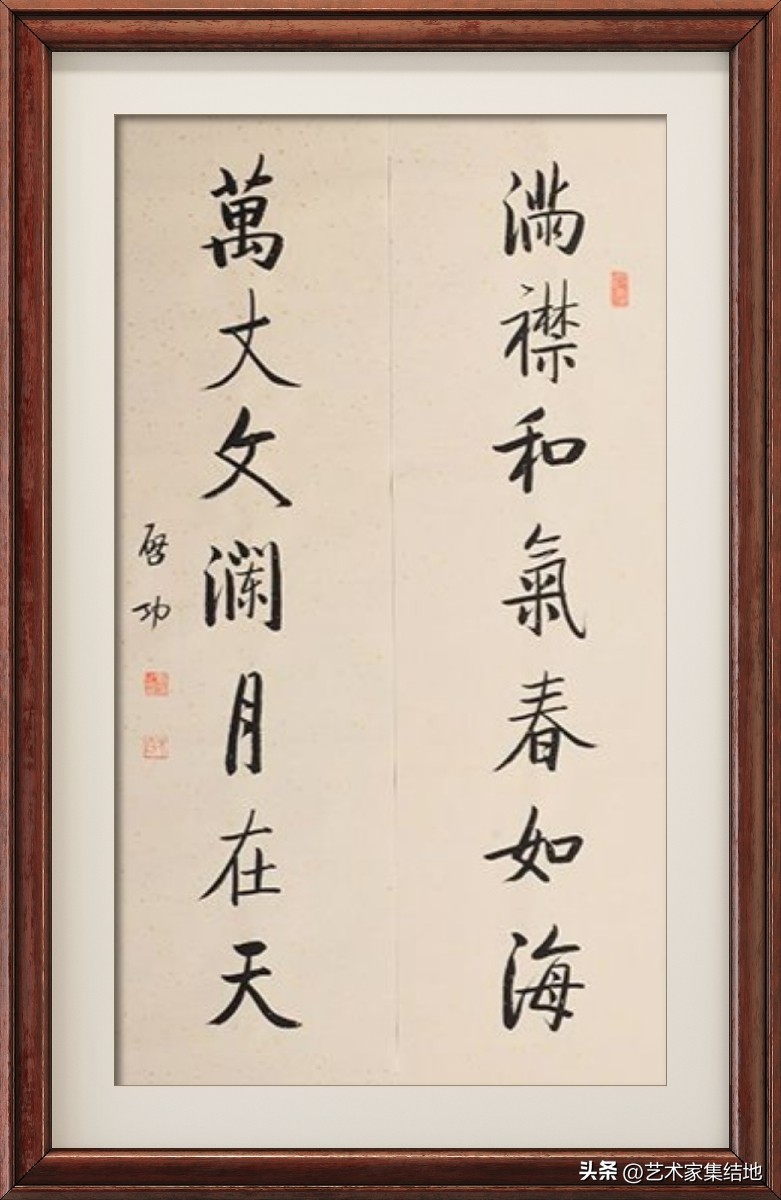 满襟和氣春如海
萬丈文澜月在天
啓功
头条 @艺术家集结地